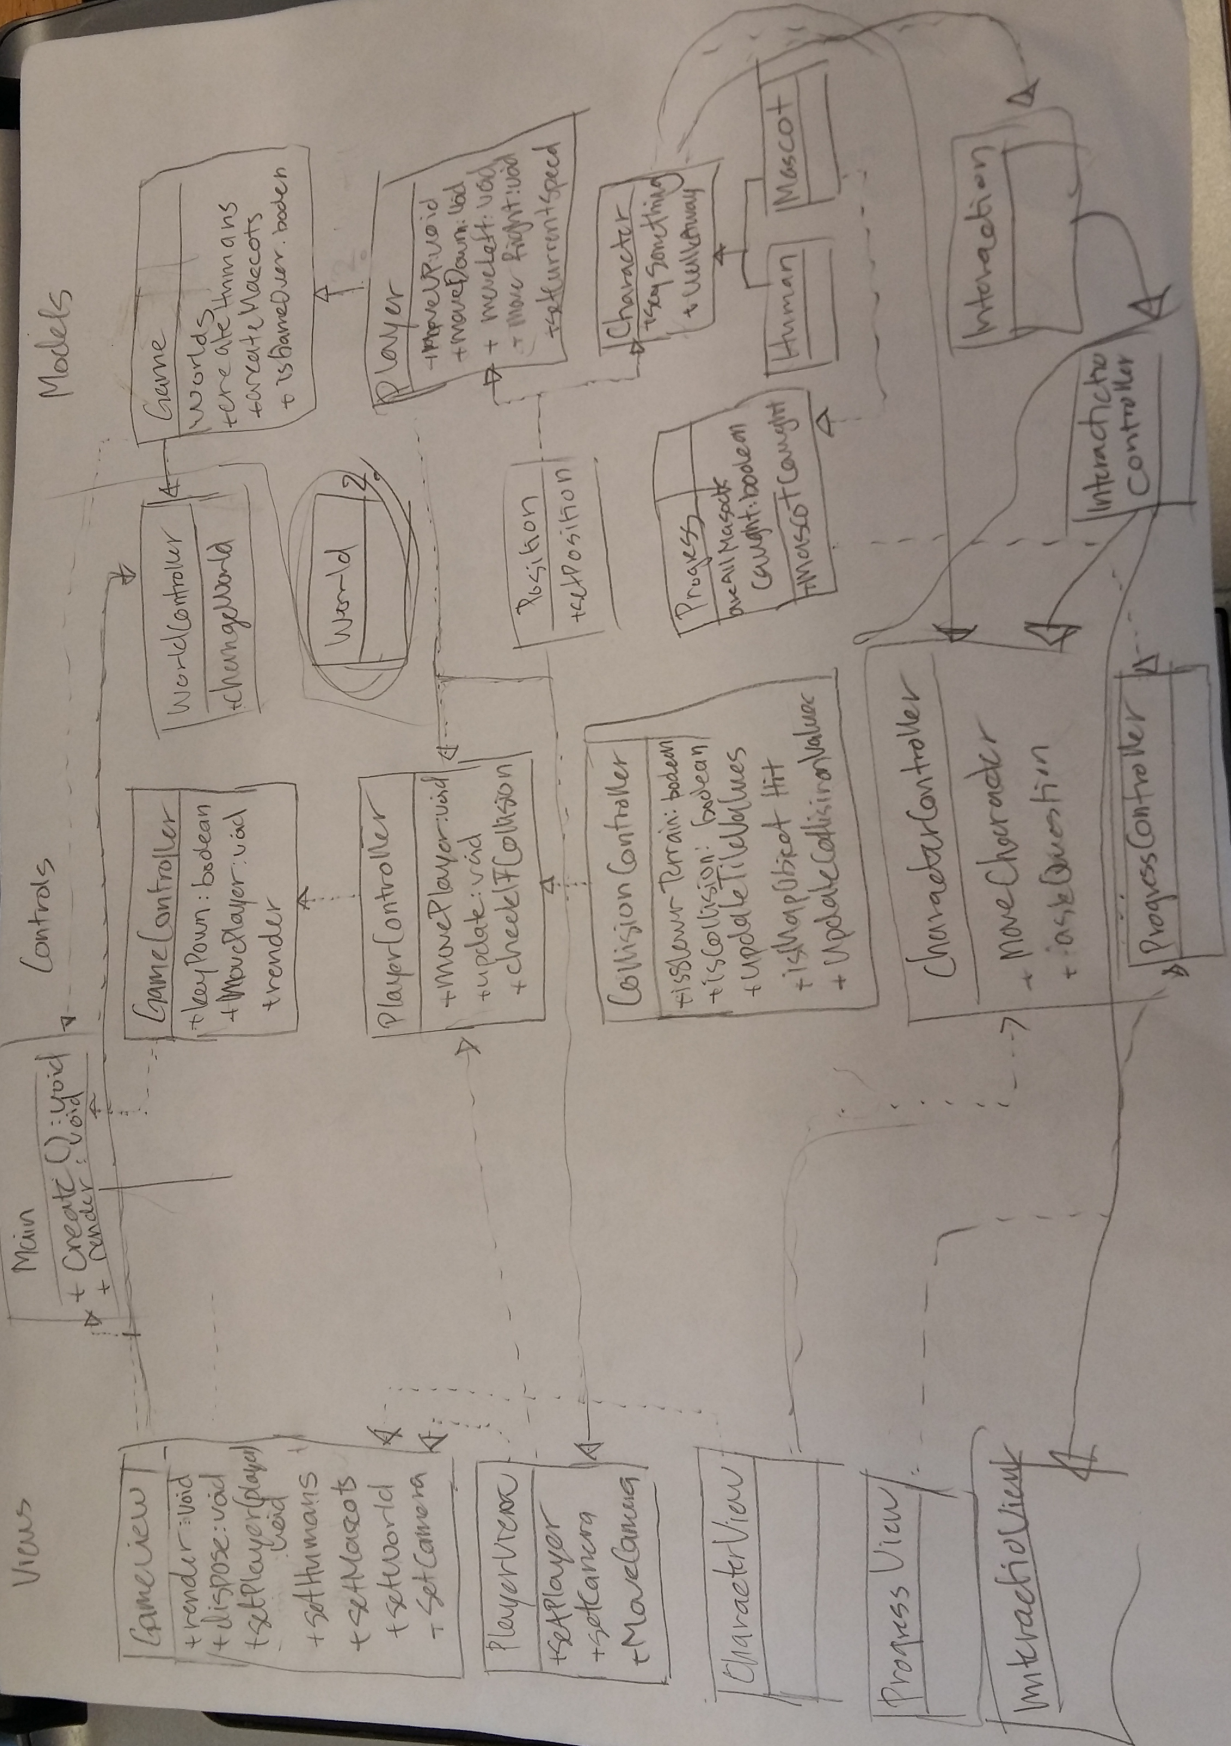 Main
+ Create () : void
+ render : void
Views
Controls
Models
GameView
+ render : void
+ dispose : void
+ setPlayer(player)
: void
+ setHumans
+ setMascots
+ setWorld
- SetCamera
PlayerView
+ setPlayer
+ setCamera
+ MoveCamera
CharacterView
Progress View
GameController
+ keyDown : boolean
+ MovePlayer : void
+ render
PlayerController
+ movePlayer : void
+ update : void
+ checkIfCollision
CollisionController
+ isCollision : boolean
+ updateTileValues
+ isMapObject Hit
CharacterController
+ MoveCharacter
+ askQuestion
ProgressController
WorldController
+ changeWorld
World
?
Position
+ setPosition
Progress
caught : boolean
+ MascotCaught
Controller
Game
Worlds
+ createHumans
+ createMascots
+ isGameOver : boolen
Player
+ MoveUP : void
+ moveDown : void
+ moveLeft : void
+ move Right : void
+ setCurrentSpeed
Character
+ saySomething
+ walkAway
Human
Mascot
Interaction